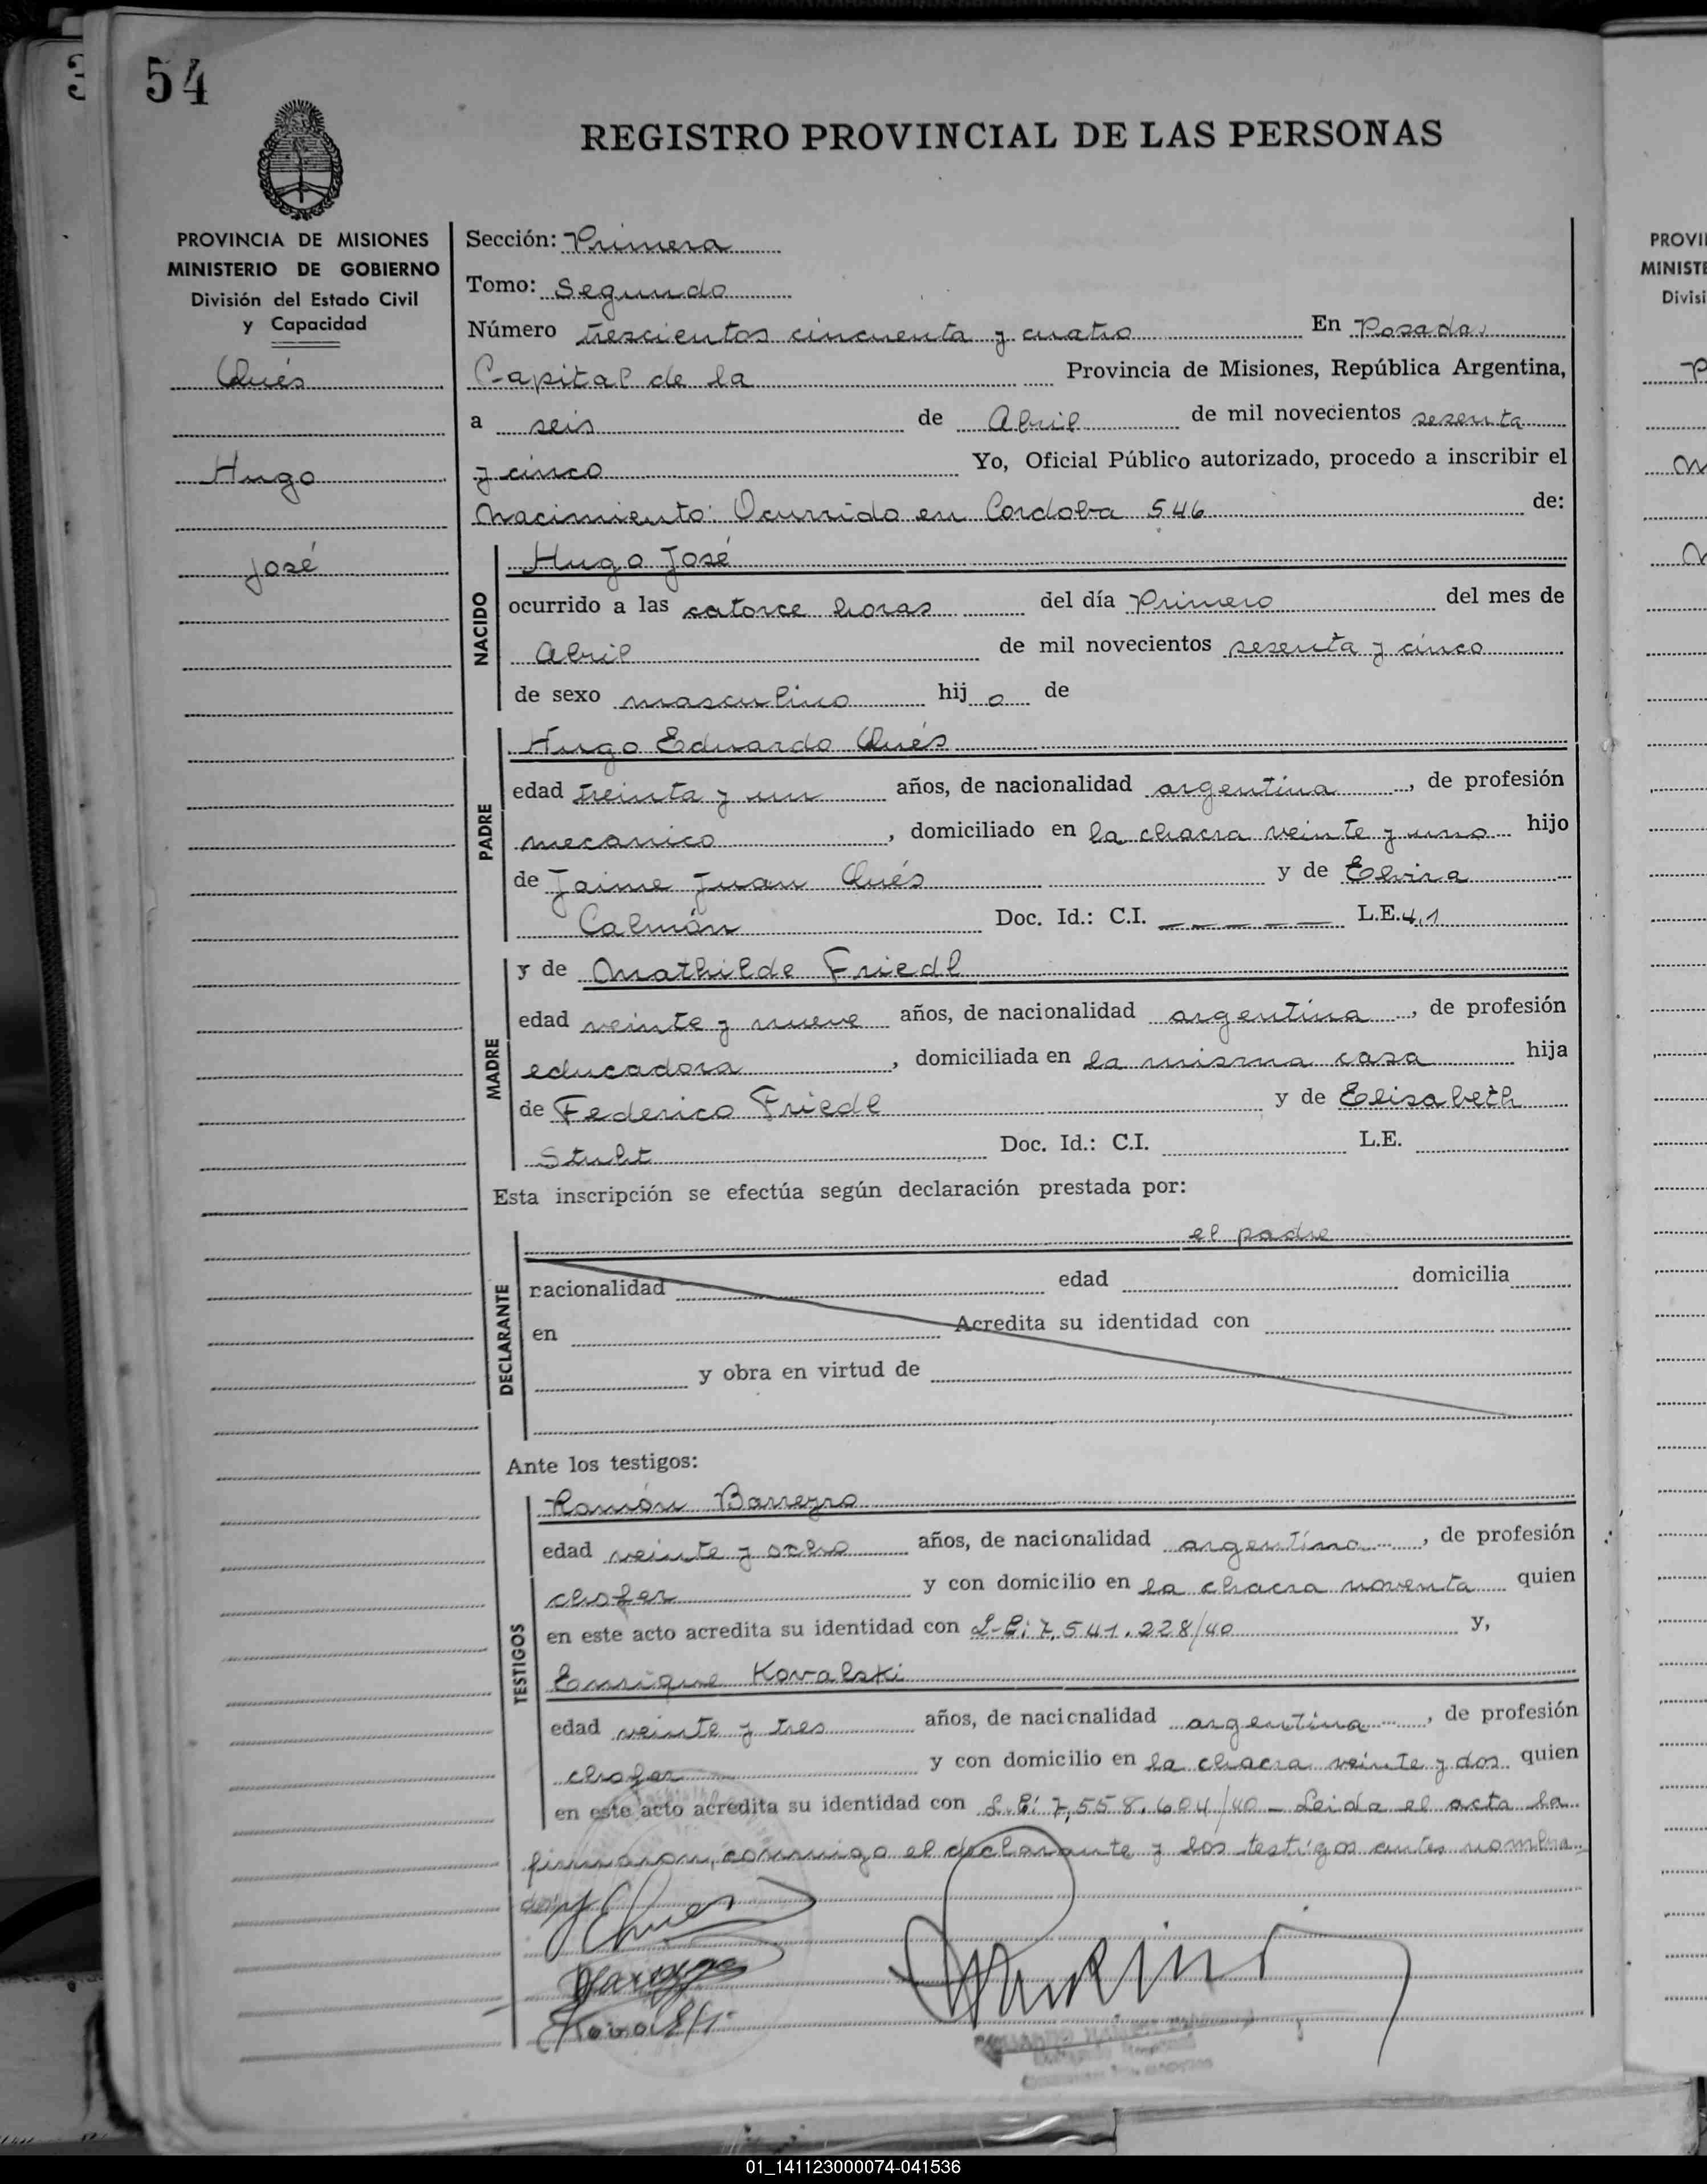 54
REGISTRO PROVINCIAL DE LAS PERSONAS
PROVINCIA DE MISIONES
MINISTERIO DE GOBIERNO
División del Estado Civil
y Capacidad
Chués
Hugo
José
Sección: Primera
Tomo: Segundo
Número trescientos cincuenta y cuatro En Posadas
Capital de la Provincia de Misiones, República Argentina,
a seis de Abril de mil novecientos sesenta
y cinco Yo, Oficial Público autorizado, procedo a inscribir el
Nacimiento: Ocurrido en Cordoba 546 de:
NACIDO
Hugo José
ocurrido a las catorce horas del día Primero del mes de
Abril de mil novecientos sesenta y cinco
de sexo masculino hijo de
PADRE
Hugo Eduardo Chués
edad treinta y un años, de nacionalidad argentina, de profesión
mecanico, domiciliado en la chacra veinte y uno hijo
de Jaime Juan Chués y de Elvira
Calmón Doc. Id.: C.I. — — — — — L.E.
MADRE
y de Mathilde Friedl
edad veinte y nueve años, de nacionalidad argentina, de profesión
educadora, domiciliada en la misma casa hija
de Federico Friedl y de Elisabeth
Doc. Id.: C.I. L.E.
Esta inscripción se efectúa según declaración prestada por:
DECLARANTE
el padre
nacionalidad edad domicilia
en Acredita su identidad con
y obra en virtud de
Ante los testigos:
TESTIGOS
Ramón Barreyro
edad veinte y ocho años, de nacionalidad argentina, de profesión
chofer y con domicilio en la chacra noventa quien
en este acto acredita su identidad con L.E: 7,541.228/40 y,
Enrique Kovalski
edad veinte y tres años, de nacionalidad argentina, de profesión
chofer y con domicilio en la chacra veinte y dos quien
en este acto acredita su identidad con L.E: 7,558.604/40 - Leida el acta la
firmaron, conmigo el declarante y los testigos antes nombra
dos
PROVI
MINISTE
Divisi
01_141123000074-041536